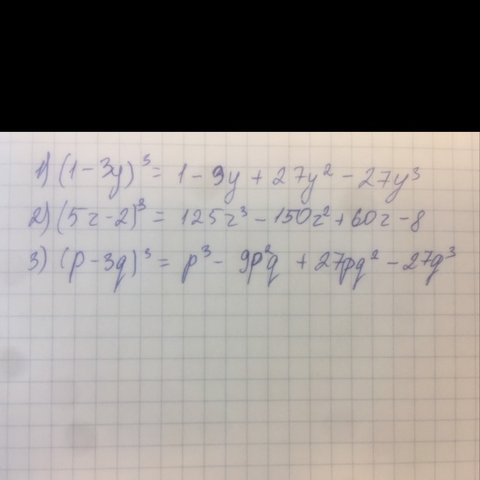 1) (1-3y)³ = 1 - 9y + 27y² - 27y³
2) (5z-2)³ = 125z³ - 150z² + 60z - 8
3) (p-3q)³ = p³ - 9p²q + 27pq² - 27q³